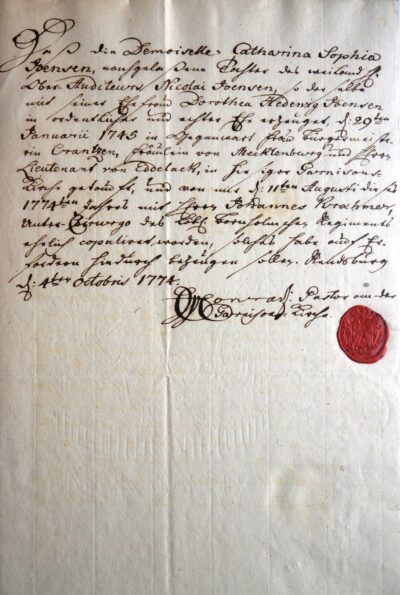 Daß die Demoiselle Catharina Sophia
Boensen, nachgelaßene Tochter des weiland H.
Ober Auditeurs Nicolai Boensen, so derselbe
mit seiner Ehefrau Dorothea Hedewig Boensen
in ordentlicher und echter Ehe erzeuget, d: 29ten
Januarii 1745 in Gegenwart Frau Burgermeiste-
rin Crantzen, Fräulein von Mecklenburg und Herrn
Lieutenant von Eddelack, in hiesiger Garnisons-
Kirche getauft, und von mir d: 11ten Augusti dieses
1774ten Jahres mit Herrn Johannes Krahmer,
Unter-Chirurgo des Bornholmschen Regiments
ehelich copuliret worden, solches habe auf Er-
fordern hiedurch bezeugen sollen. Rendsburg
d: 4ten Octobris 1774.
Pastor an der
Garnisons-Kirche.